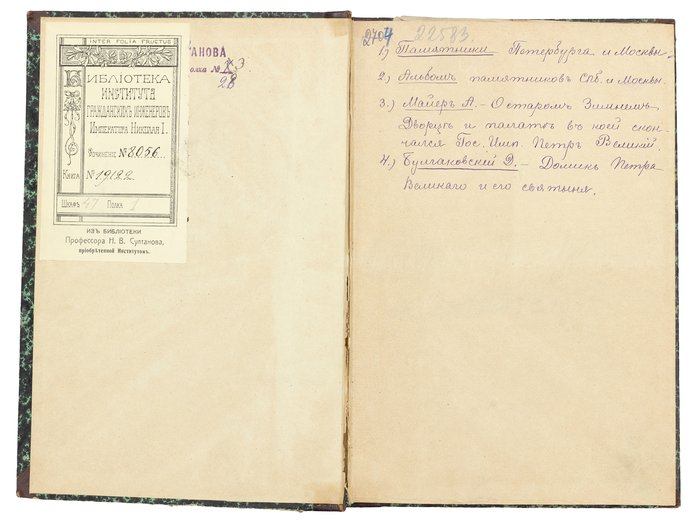 INTER FOLIA FRUCTUS
БИБЛІОТЕКА
ИНСТИТУТА
ГРАЖДАНСКИХЪ ИНЖЕНЕРОВЪ
ИМПЕРАТОРА НИКОЛАЯ I.
Сочиненіе № 8056...
Книга № 19122
Шкафъ 47 Полка 1
ИЗЪ БИБЛІОТЕКИ
Профессора Н. В. Султанова,
пріобрѣтенной Институтомъ.
ТАНОВА
олка №
28
2704 22583.
1.) Памятники Петербурга и Москвы.
2.) Альбомъ памятниковъ Спб. и Москвы.
3.) Майеръ А. - О старомъ Зимнемъ
Дворцѣ и палатѣ въ коей скон-
чался Гос. Имп. Петръ Великій.
4.) Булгаковскій Д. - Домикъ Петра
Великаго и его святыня.